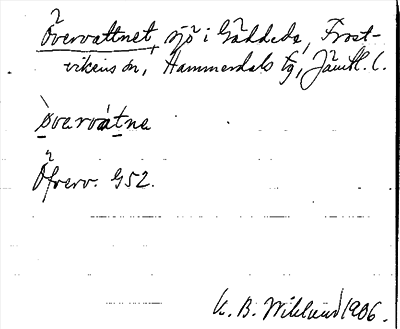 Övervattnet, sjö i Gäddede, Frost-
vikens sn, Hammerdals tg, Jämtl. l.
òvərvátnə
Öfverv. G52.
K. B. Wiklund 1906.